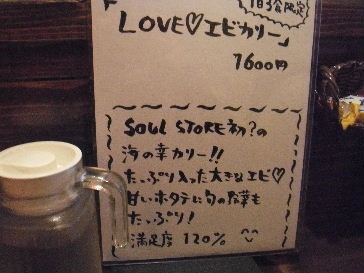 1日3食限定
「LOVE♡エビカリー」
1600円
SOUL STORE初?の
海の幸カリー!!
たっぷり入った大きなエビ♡
甘いホタテに旬の野菜も
たっぷり!
満足度 120%